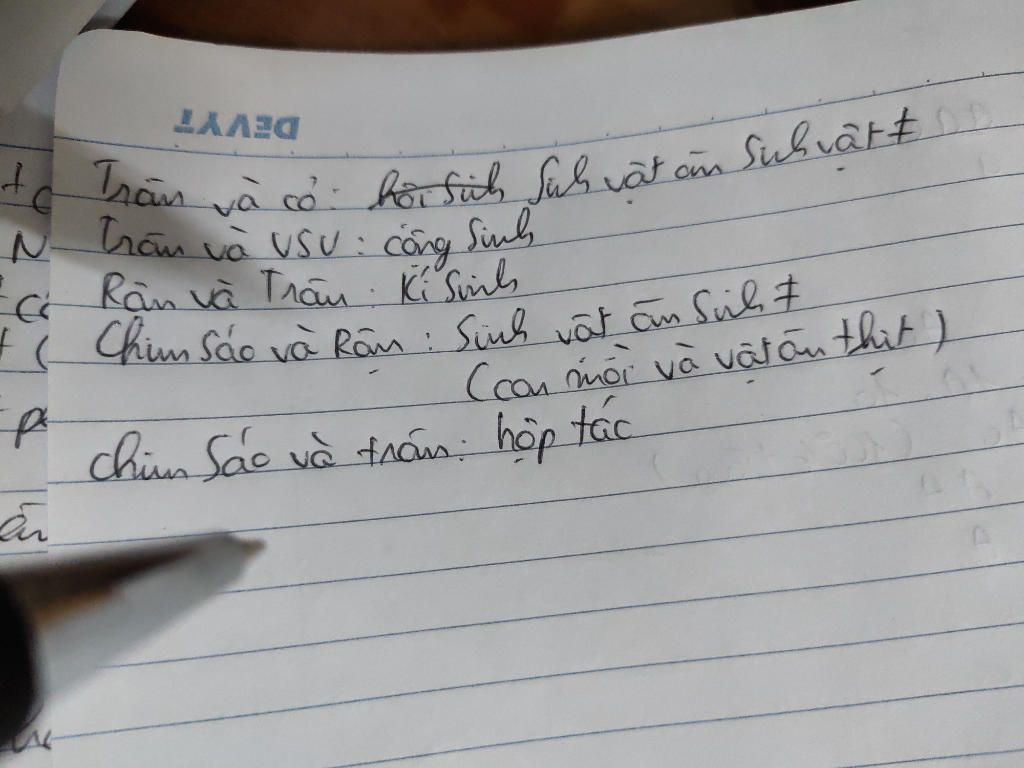 DEVYT
Trân và cỏ: hội sinh Sinh vật ăn Sinh vật ≠
Trâu và VSV: cộng Sinh
Rận và Trâu: Kí Sinh
Chim Sáo và Rận: Sinh vật ăn Sinh ≠
(con mồi và vật ăn thịt)
chim Sáo và trâu: hợp tác